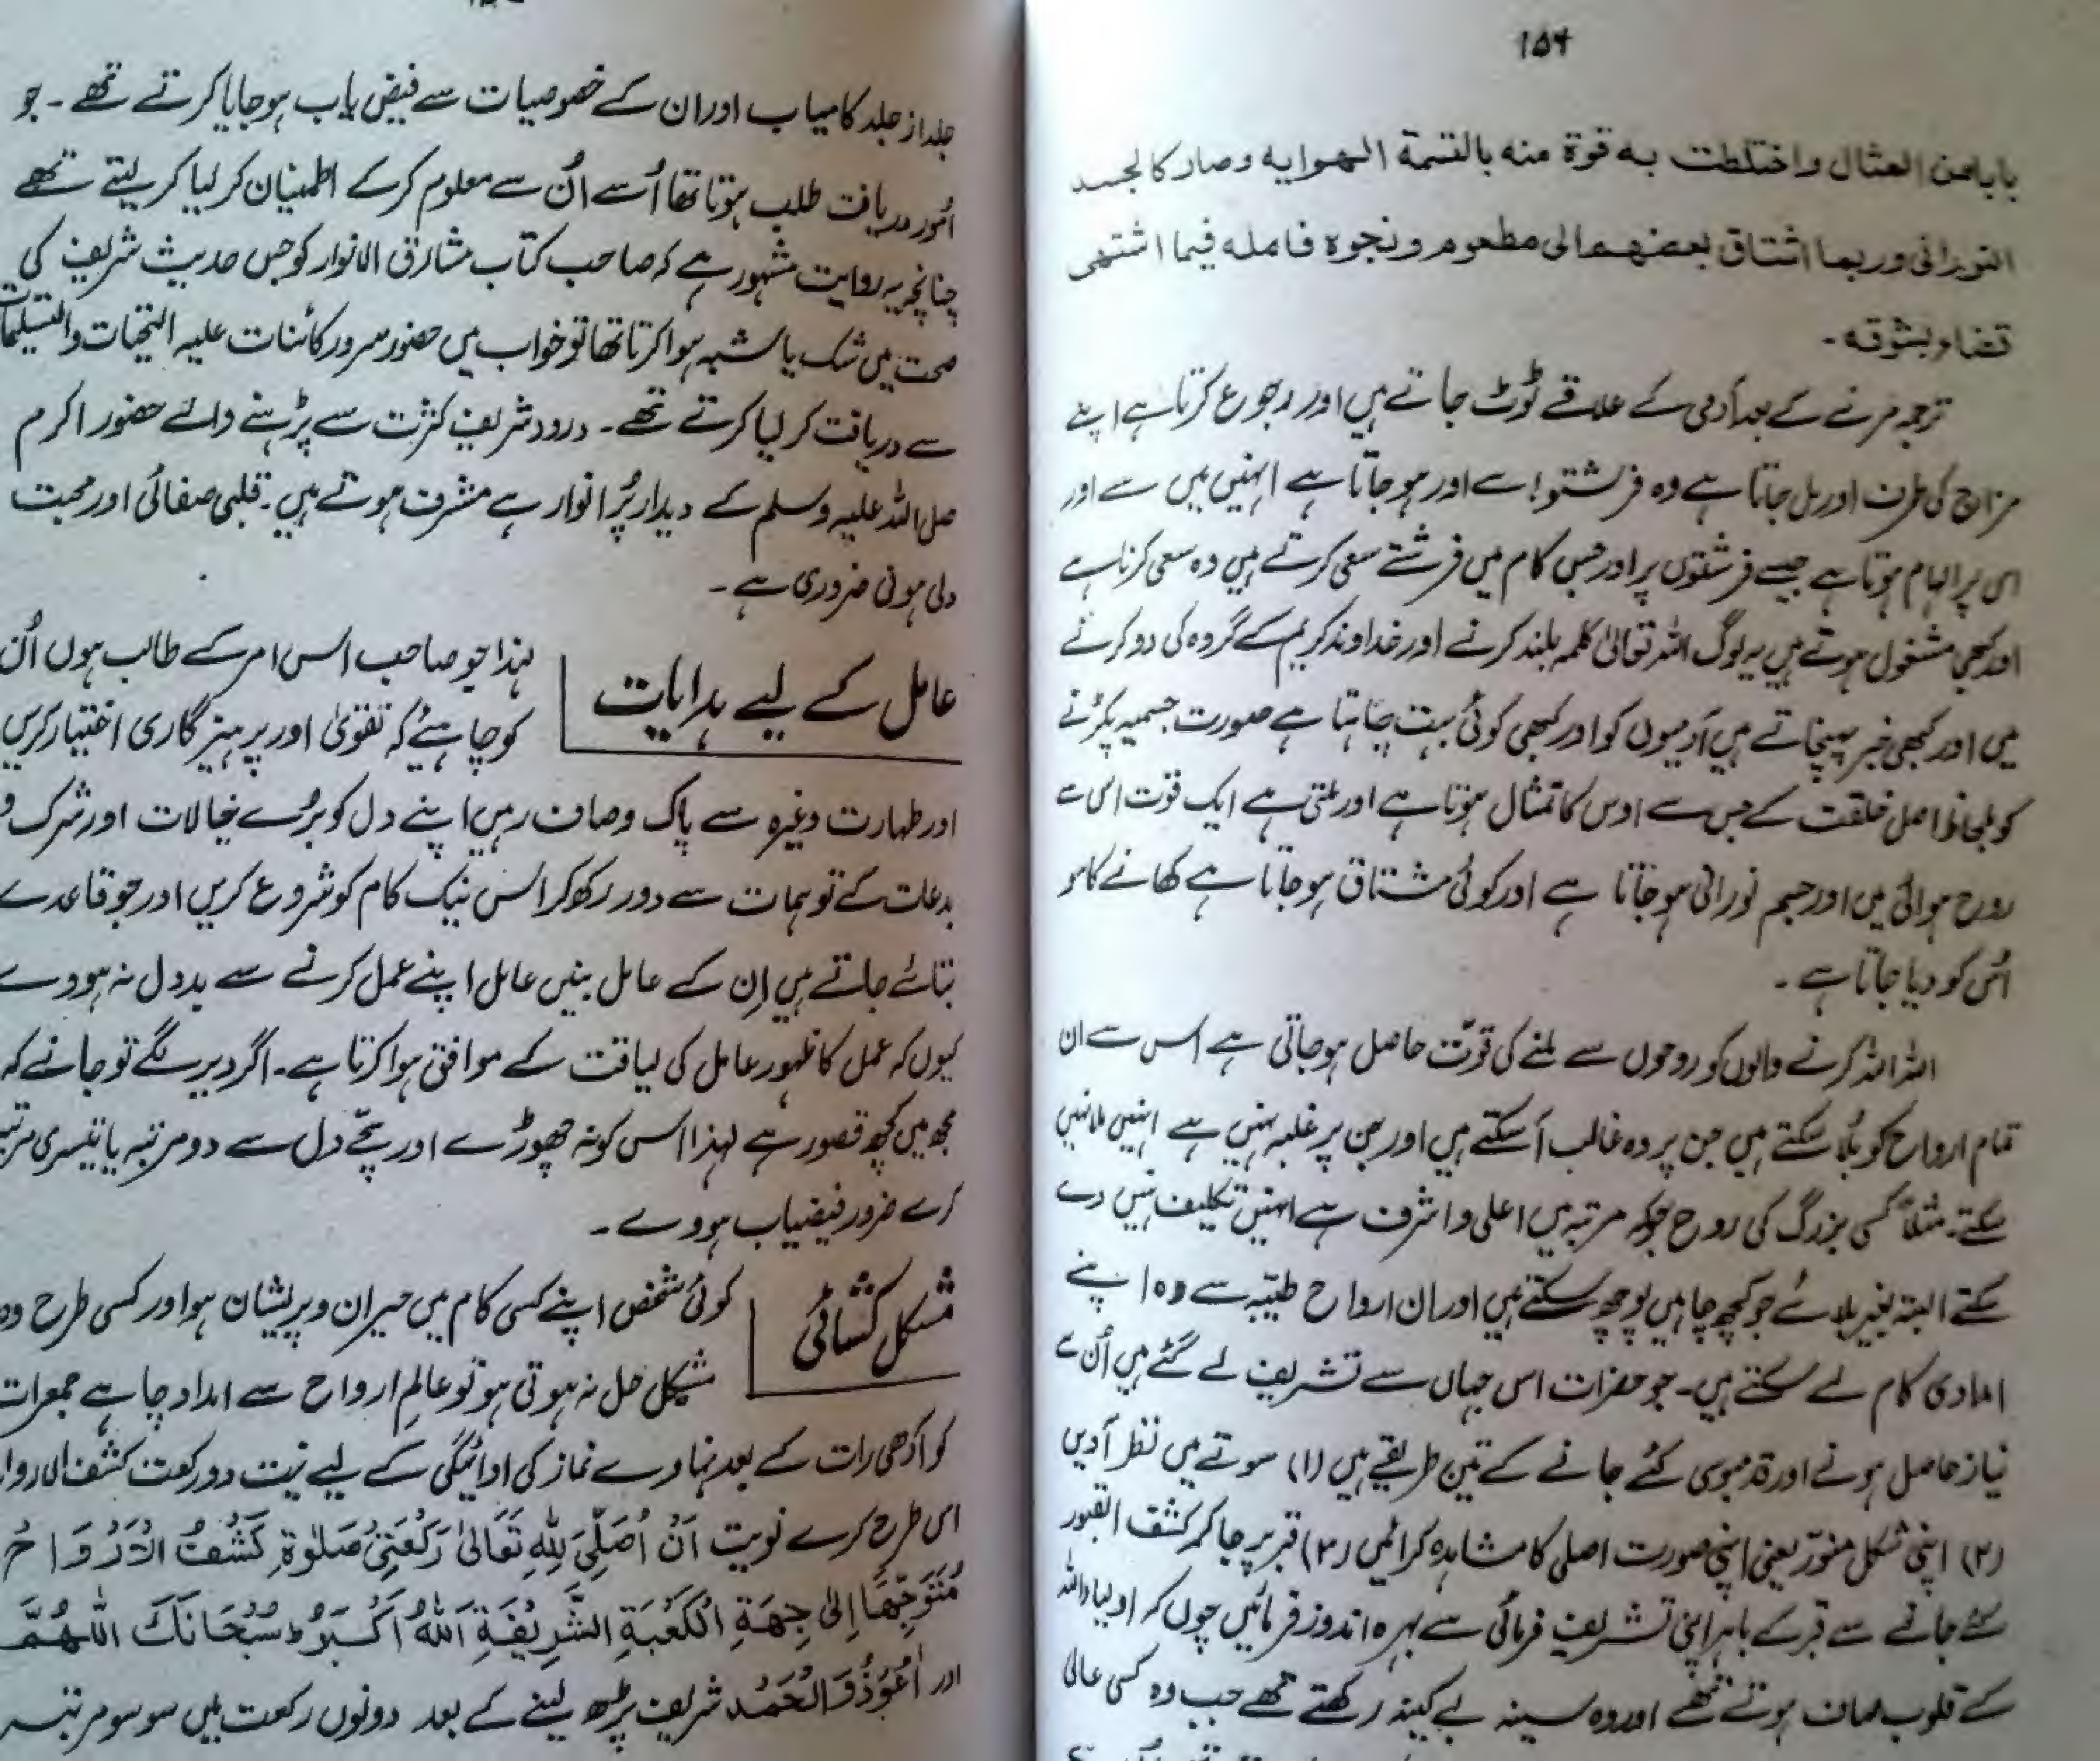 ۱۵۴
بابامن المثال واختلطت به قوة منه بالقسمة الهوايه وصار كالجسد
النورانى وربما اشتاق بعضهم الى مطعوم ونجوه فامله فيما اشتهى
قضاء بشوقه -
ترجمہ مرنے کے بعد آدمی کے علاقے ٹوٹ جاتے ہیں اور رجوع کرتا ہے اپنے
مزاج کی طرف اور مل جاتا ہے وہ فرشتوں سے اور ہو جاتا ہے انہیں میں سے اور
اس پر الہام ہوتا ہے جیسے فرشتوں پر اور جس کام میں فرشتے سعی کرتے ہیں وہ سعی کرتا ہے
اور کبھی مشغول ہوتے ہیں یہ لوگ اللہ تعالیٰ کلمہ بلند کرنے اور خداوند کریم کے گروہ کی دو کرنے
میں اور کبھی خبر پہنچاتے ہیں آدمیوں کو اور کبھی کوئی بہت چاہتا ہے صورت جسمیہ پکڑنے
کو بلحاظ اصل خلقت کے جس سے اوس کا تمثال ہوتا ہے اور ملتی ہے ایک قوت اس سے
روح ہوائی میں اور جسم نورانی ہو جاتا ہے اور کوئی مشتاق ہو جاتا ہے کھانے کا سو
اُس کو دیا جاتا ہے -
اللہ اللہ کرنے والوں کو روحوں سے ملنے کی قوّت حاصل ہو جاتی ہے اس سے ان
تمام ارواح کو بُلا سکتے ہیں جن پر وہ غالب آ سکتے ہیں اور جن پر غلبہ نہیں ہے انہیں بلا نہیں
سکتے۔ مثلاً کسی بزرگ کی روح جو کہ مرتبہ میں اعلی و اشرف ہے انہیں تکلیف نہیں دے
سکتے البتہ بغیر بلائے جو کچھ چاہیں پوچھ سکتے ہیں اور ان ارواح طیّبہ سے وہ اپنے
امدادی کام لے سکتے ہیں۔ جو حضرات اس جہاں سے تشریف لے گئے ہیں اُن سے
نیاز حاصل ہونے اور قدمبوسی کئے جانے کے تین طریقے ہیں (۱) سوتے میں نظر آدیں
(۲) اپنی شکل منوّر یعنی اپنی صورت اصلی کا مشاہدہ کرائیں (۲) قبر پر جا کر کشف القبور
کئے جانے سے قبر کے باہر اپنی تشریف فرمائی سے بہرہ اندوز فرمائیں چوں کہ اولیاء اللہ
کے قلوب صاف ہوتے تھے اور وہ سینہ بے کینہ رکھتے تھے جب وہ کسی عالی
جلد از جلد کامیاب اور ان کے خصوصیات سے فیض یاب ہو جایا کرتے تھے - جو
اُمور دریافت طلب ہوتا تھا اُسے اُن سے معلوم کر کے اطمینان کر لیا کر لیتے تھے
چنانچہ یہ روایت مشہور ہے کہ صاحب کتاب مشارق الانوار کو جس حدیث شریف کی
صحت میں شک یا شبہ ہوا کرتا تھا تو خواب میں حضور سرور کائنات علیہ التحیات والتسلیمات
سے دریافت کر لیا کرتے تھے - درود شریف کثرت سے پڑہنے والے حضور اکرم
صلی اللہ علیہ وسلم کے دیدار پُر انوار ہے مشرف ہوتے ہیں - قلبی صفائی اور محبت
دلی ہونی ضروری ہے -
عامل کے لیے ہدایات
لہذا جو صاحب اس امر کے طالب ہوں اُن
کو چاہیئے کہ تقویٰ اور پرہیز گاری اختیار کریں
اور طہارت وغیرہ سے پاک وصاف رہیں اپنے دل کو بُرے خیالات اور شرک و
بدعات کے توہمات سے دور رکھ کر اس نیک کام کو شروع کریں اور جو قاعدے
بتائے جاتے ہیں اِن کے عامل بنیں عامل اپنے عمل کرنے سے بددل نہ ہووے
کیوں کہ عمل کا ظہور عامل کی لیاقت کے موافق ہوا کرتا ہے۔ اگر دیر لگے تو جانے کہ
مجھ میں کچھ قصور ہے لہذا اس کو نہ چھوڑے اور سچّے دل سے دو مرتبہ یا تیسری مرتبہ
کرے ضرور فیضیاب ہووے -
مشکل کشائی
کوئی شخص اپنے کسی کام میں حیران و پریشان ہو اور کسی طرح وہ
مشکل حل نہ ہوتی ہو تو عالمِ ارواح سے امداد چاہے جمعرات
کو آدھی رات کے بعد نہاوے نماز کی ادائیگی کے لیے نیت دو رکعت کشف الاروا
اس طرح کرے نویت اَنْ اُصَلِّیَ لِلّٰہِ تَعَالیٰ رَکْعَتَیْ صَلٰوۃِ کَشْفُ الْاَرْوَاحُ
مُتَوَجِّهًا اِلیٰ جِهَةِ الْكَعْبَةِ الشَّرِيْفَةِ اَللّٰهُ اَكْبَرُ ط سُبْحَانَكَ اللّٰهُمَّ
اور اَعُوْذُ وَالْحَمْد شریف پڑھ لینے کے بعد دونوں رکعت میں سو سو مرتبہ